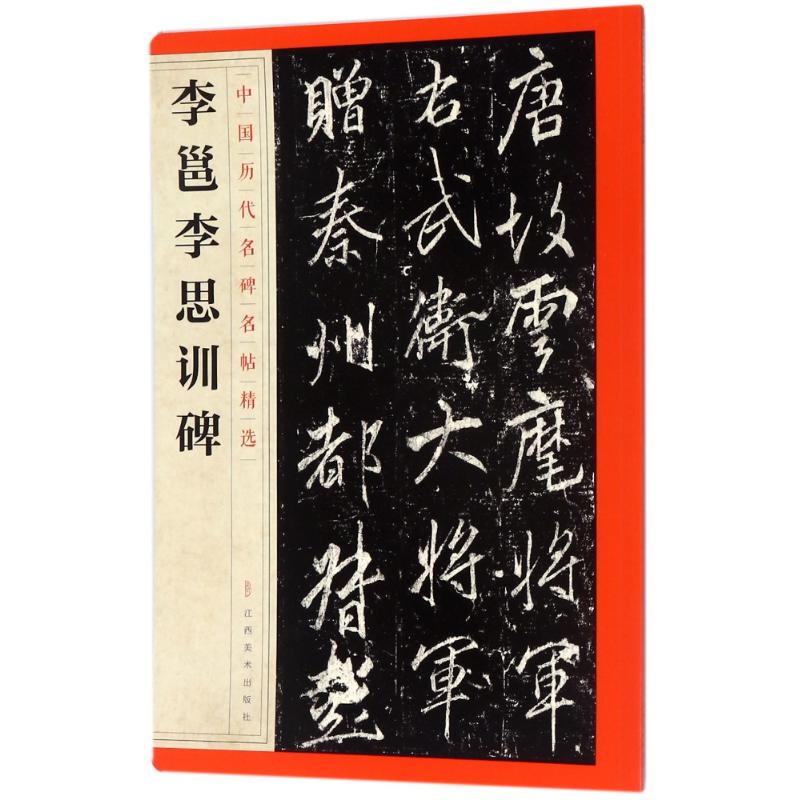 唐故雲麾將軍
右武衛大將軍
贈秦州都督彭
中国历代名碑名帖精选
江西美术出版社
李邕李思训碑